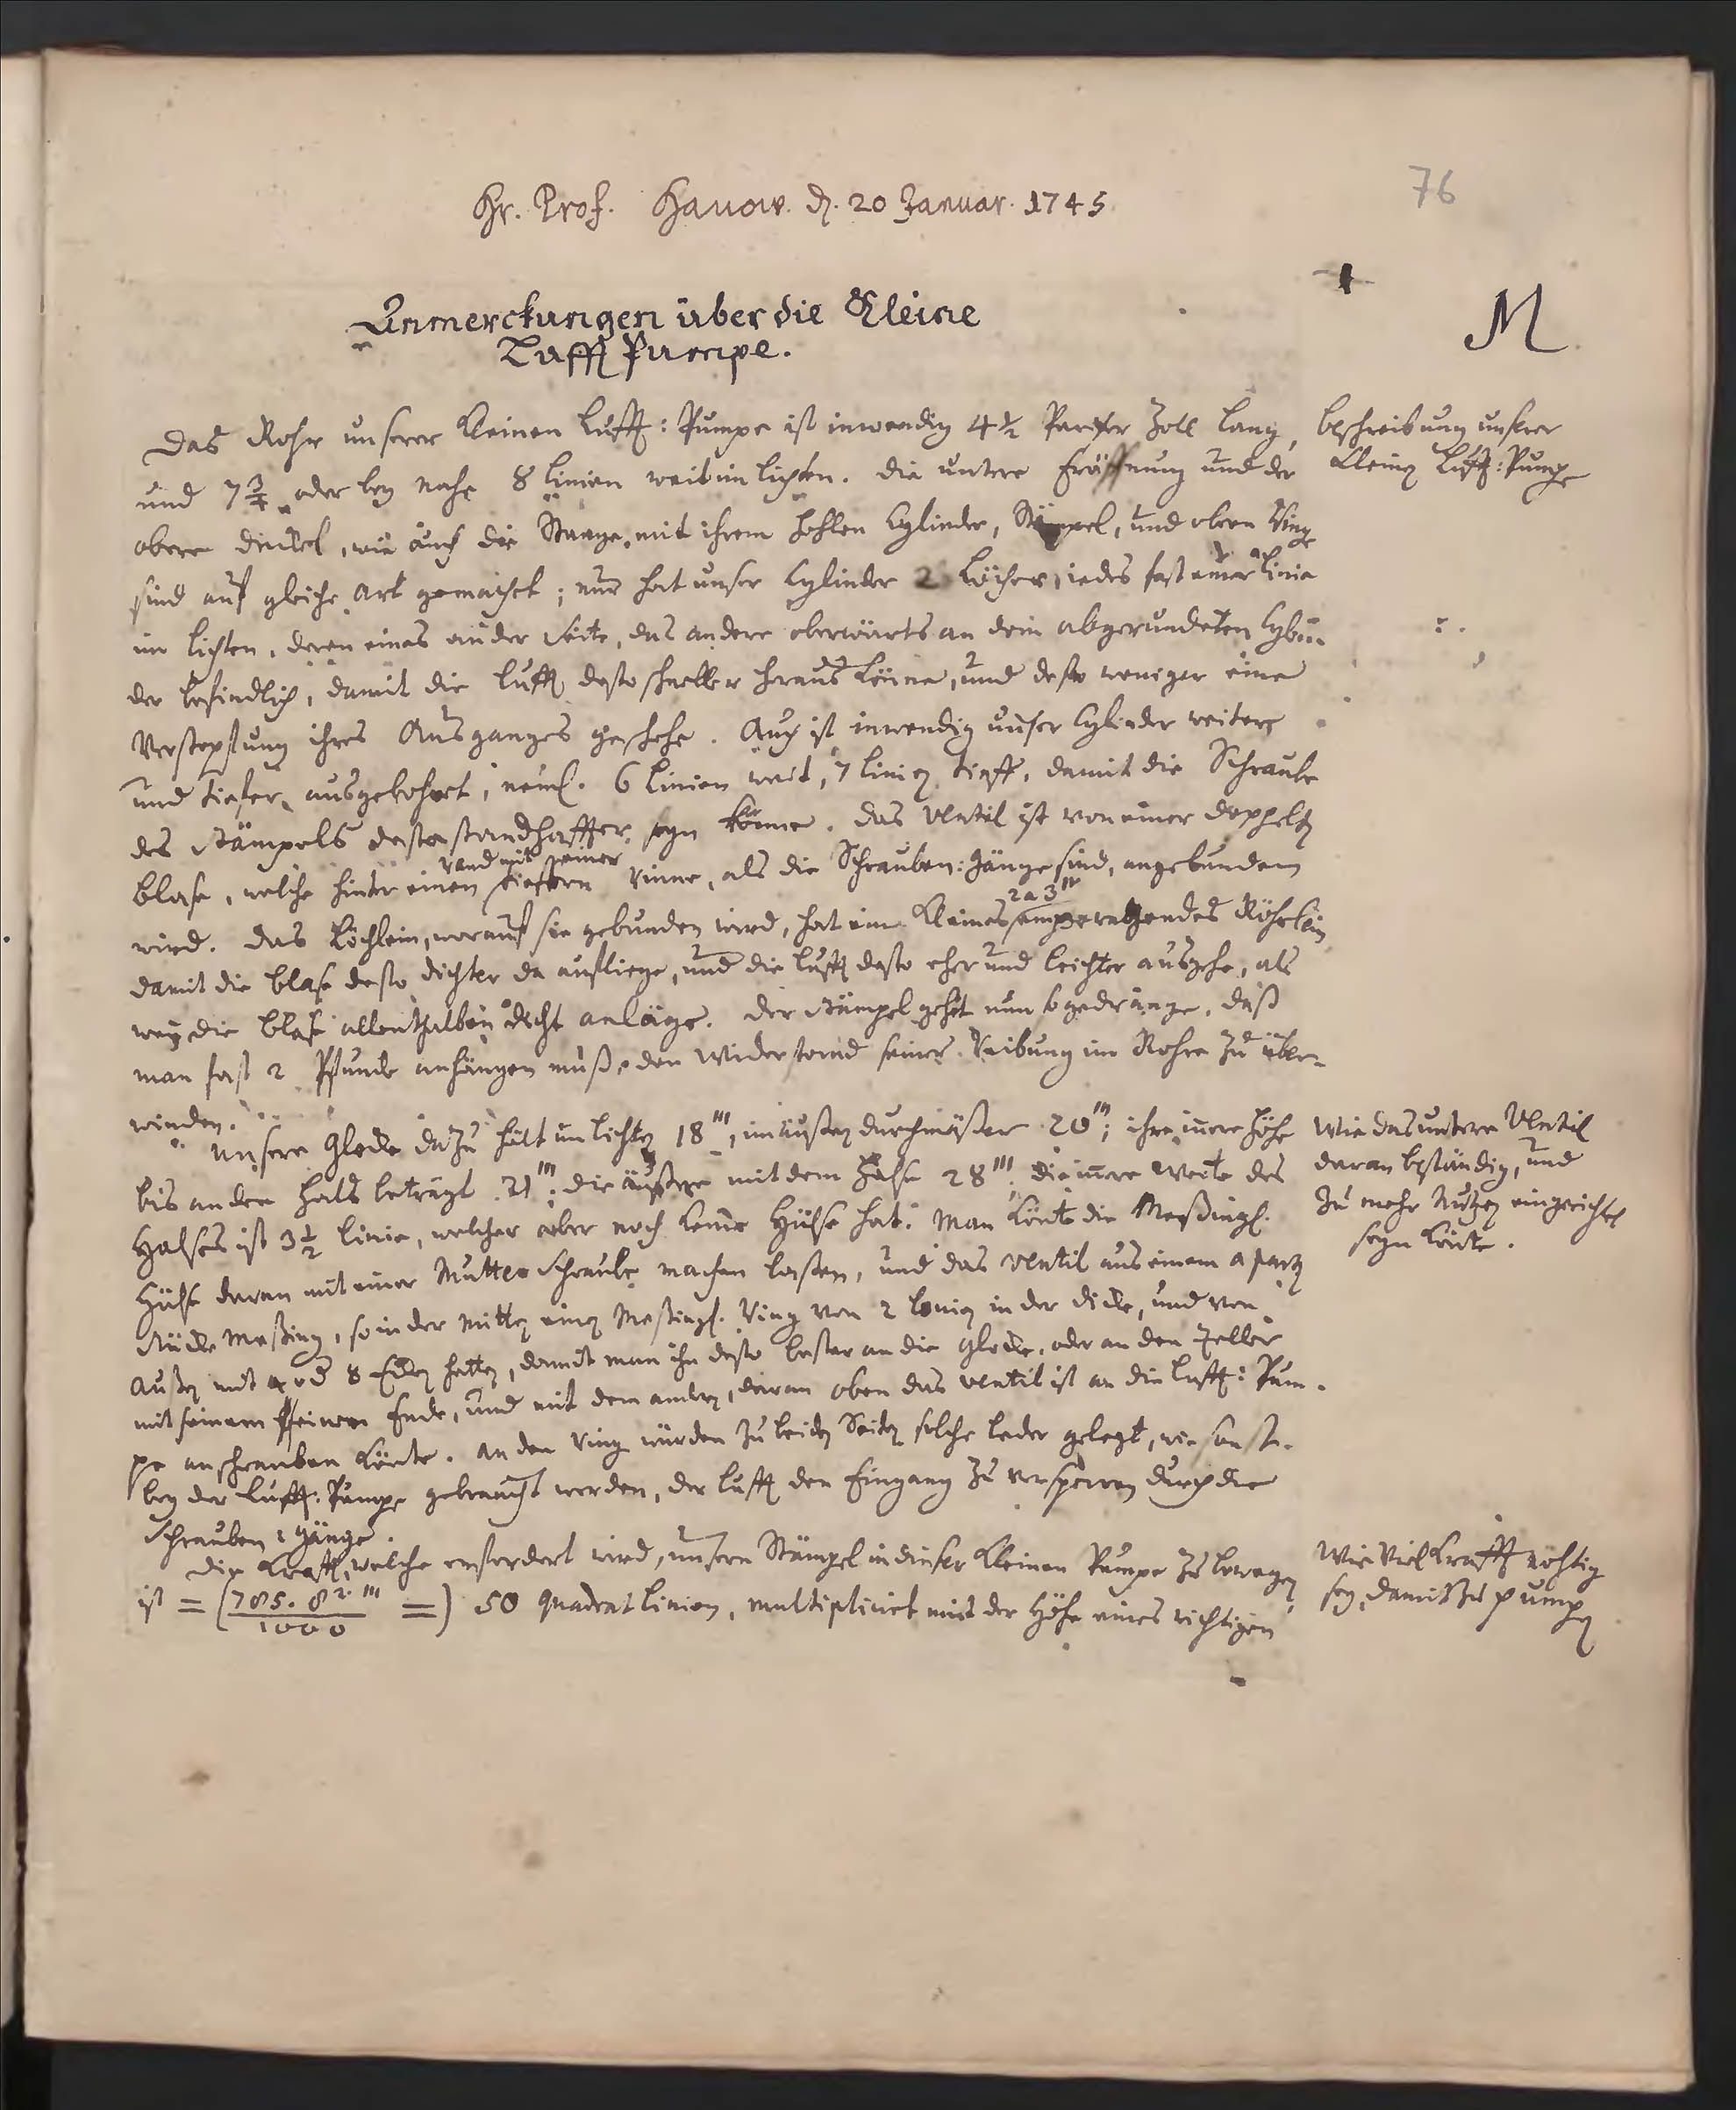 76
Hr. Prof. Hanow. d. 20 Januar. 1745
M
Anmerckungen über die Kleine
Lufft Pumpe.
Das Rohr unserer Kleinen Lufft: Pumpe ist inwendig 4½ Pariser Zoll lang,
und 7¾ oder bey nahe 8 Linien weit im lichten. Die untere Eröffnung und der
obere Deckel, wie auch die Stange mit ihrem hohlen Cylinder, Stämpel, und obern Ringe
sind auf gleiche Art gemachet; nur hat unser Cylinder 2 Löcher, iedes fast einer Linie
im lichten, deren eines an der Seite, das andere oberwärts an dem abgerundeten Cylin-
der befindlich, damit die Lufft desto schneller heraus könne, und desto weniger eine
Verstopfung ihres Ausganges geschehe. Auch ist inwendig unser Cylinder weiter
und tiefer ausgebohret, neml. 6 Linien weit, 7 Linien tieff, damit die Schraube
des Stämpels desto standhaffter seyn könne. Das Ventil ist von einer doppelten
Blase, welche hinter einen Rand mit seiner tieffern Rinne, als die Schrauben: Gänge sind, angebunden
wird. Das Röchlein, worauf sie gebunden wird, hat ein kleines 2 a 3''' emporragendes Röhrlein
damit die Blase desto dichter da aufliege, und die Lufft desto eher und leichter ausgehe, als
wen die Blase allenthalben dicht anläge. Der Stämpel gehet nun so gedränge, daß
man fast 2 Pfunde anhängen muß, den Widerstand seiner Reibung im Rohre zu über-
winden.
Unsere Glocke dazu hält im lichten 18''', im äußern Durchmäßer 20'''; ihre innere Höhe
bis an den Hals beträgt 21'''; die äußere mit dem Halse 28'''. die innere Weite des
Halses ist 3½ Linie, welcher aber noch keine Hülse hat. Man könte die Meßingl.
Hülse daran mit einer Mutter Schraube machen laßen, und das Ventil aus einem aparten
Stücke Meßing, so in der Mitten einen Meßingl. Ring von 2 Linien in der Dicke, und von
Außen mit 4 od 8 Ecken hätte, damit man ihn desto beßer an die Glocke, oder an den Teller
mit seinem einen Ende, und mit dem andern, daran oben das Ventil ist an die Lufft: Pum-
pe anschrauben könte. An den Ring würden zu beiden Seiten solche Leder gelegt, wie sonst
bey der Lufft: Pumpe gebraucht werden, der Lufft den Eingang zu versperren durch die
Schrauben: Gänge.
Die Krafft, welche erfordert wird, unsern Stämpel in dieser Kleinen Pumpe zu bewegen
ist = (785. 8². ''' / 1000 =) 50 Quadrat Linien, multipliciret mit der Höhe eines richtigen
Beschreibung unserer
Kleinen Lufft: Pumpe
Wie das untere Ventil
daran beständig, und
zu mehr Nutzen eingerichtet
seyn könte.
Wie viel Krafft nöhtig
sey, damit zu pumpen